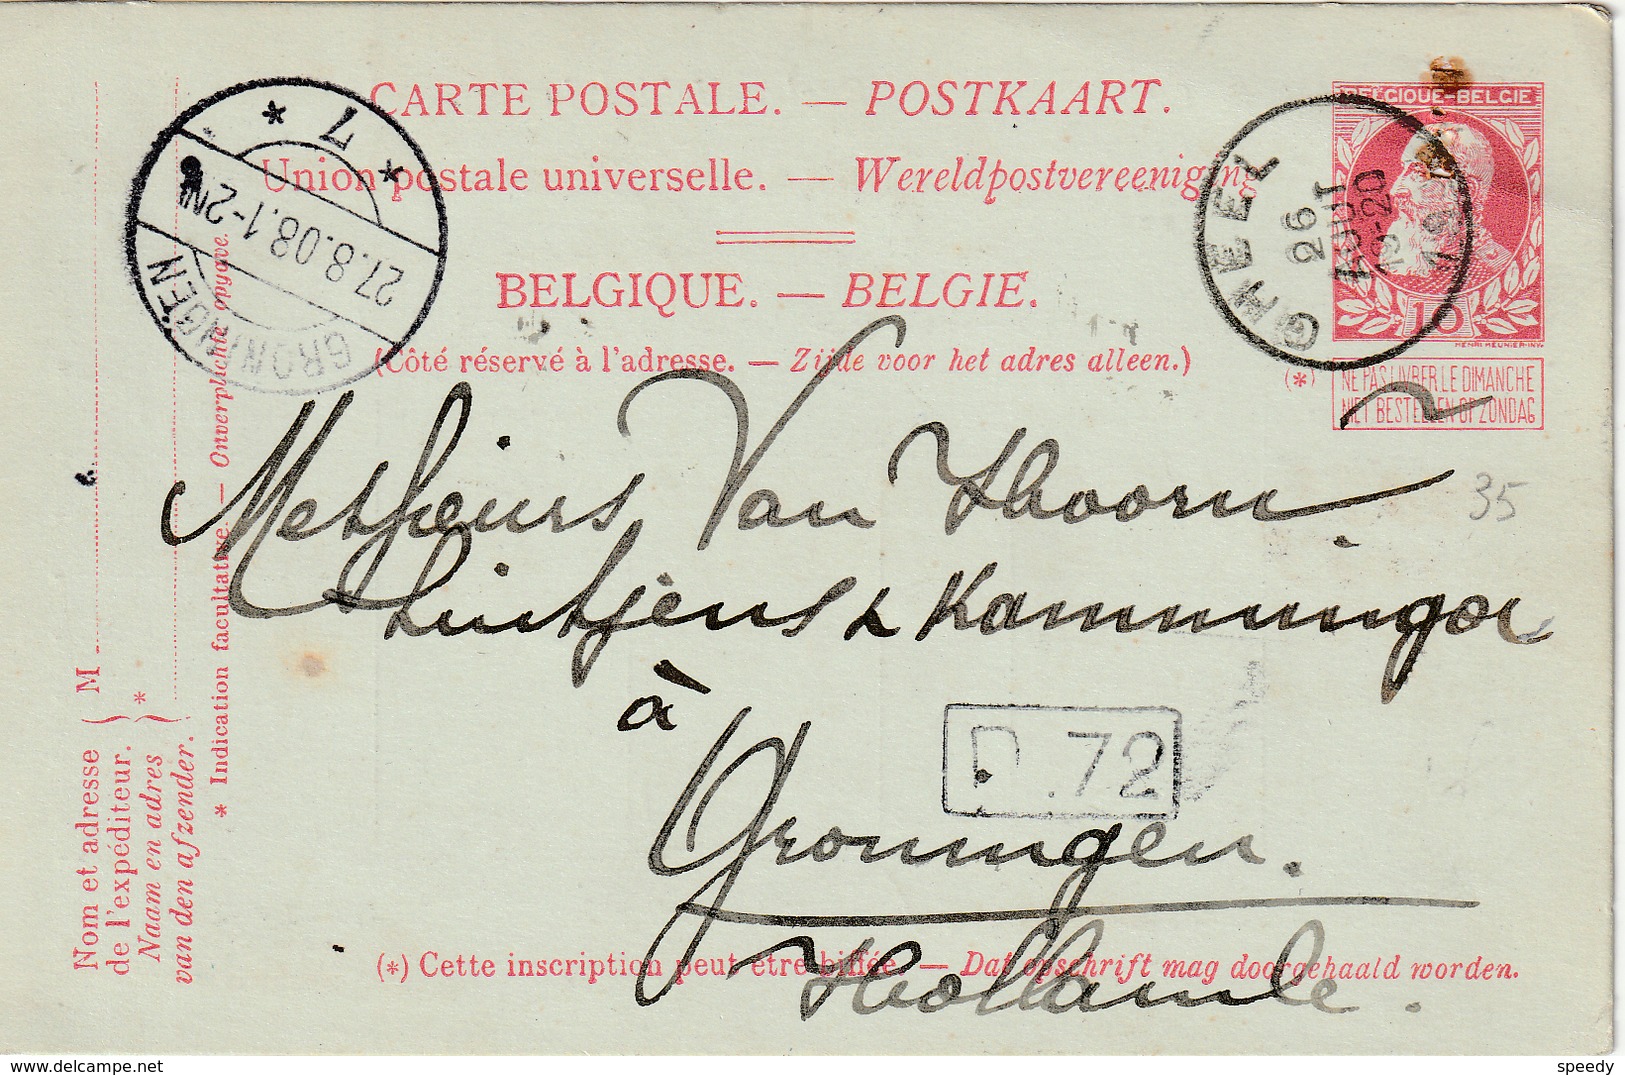 CARTE POSTALE. — POSTKAART.
Union postale universelle. — Wereldpostvereeniging
BELGIQUE. — BELGIE.
(Côté réservé à l'adresse. — Zijde voor het adres alleen.)
BELGIQUE-BELGIE
10
HENRI MEUNIER-INV.
(*) NE PAS LIVRER LE DIMANCHE
NIET BESTELLEN OP ZONDAG
GHEEL
26
AOUT
19-20
GRONINGEN
27.8.08.1-2N
* 7 *
35
Messieurs Van Hoorn
Luitjens & Kamminga
à
Groningen.
Hollande.
D.72
(*) Cette inscription peut être biffée. — Dat opschrift mag doorgehaald worden.
M
Nom et adresse
de l'expéditeur.
Naam en adres
van den afzender.
*
* Indication facultative — Onverplichte opgave.
speedy